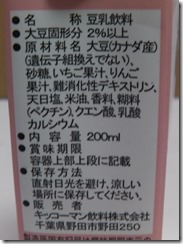 ●名　称 豆乳飲料
●大豆固形分 2％以上
●原材料名 大豆(カナダ産)
(遺伝子組換えでない)、
砂糖、いちご果汁、りんご
果汁、難消化性デキストリン、
天日塩、米油、香料、糊料
(ペクチン)、クエン酸、乳酸
カルシウム
●内 容 量 200ml
●賞味期限
容器上部上段に記載
●保存方法
直射日光を避け、涼しい
場所に保存してください。
●製造者
キッコーマン飲料株式会社
千葉県野田市野田250